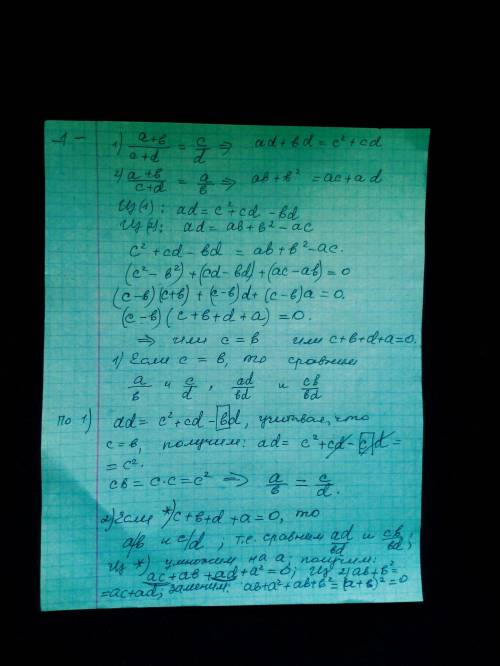 -1-
1) (a+в)/(c+d) = c/d ⇒ ad+вd = c²+cd
2) (a+в)/(c+d) = a/в ⇒ aв+в² = ac+ad
Из(1): ad = c²+cd -вd
Из(2): ad = aв+в²-ac
c²+cd-вd = aв+в²-ac.
(c²-в²)+(cd-вd)+(ac-aв)=0
(c-в)(c+в)+(c-в)d+(c-в)a=0.
(c-в)(c+в+d+a)=0.
⇒ или c=в или c+в+d+a=0.
1) Если c=в, то сравним
a/в и c/d, ad/вd и cв/вd
по 1) ad= c²+cd-вd, учитывая, что
c=в, получим: ad= c²+cd-cd=
= c².
cв=c·c=c² ⇒ a/в = c/d.
2) Если *) c+в+d+a=0, то
a/в и c/d, т.е. сравним ad/вd и cв/вd;
Из *) умножим на a, получим:
ac+aв+ad+a²=0; Из 2) aв+в²=
=ac+ad, заменим: aв+a²+aв+в²=(a+в)²=0